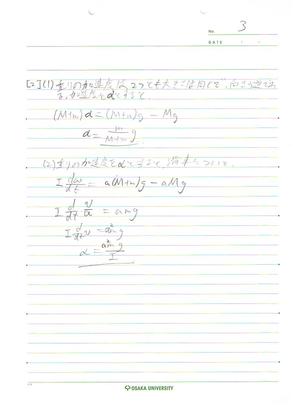 No. 3
DATE
[2](1) 重りの加速度は2つとも大きさは同じで、向きが逆である。
加速度をαとすると、
(M+m)α = (M+m)g − Mg
α = m/(M+m) g
(2) 重りの加速度をαとすると、滑車について、
I dω/dt = a(M+m)g − aMg
I d/dt v/a = amg
I d/dt v = a²mg
α = a²mg/I
OSAKA UNIVERSITY